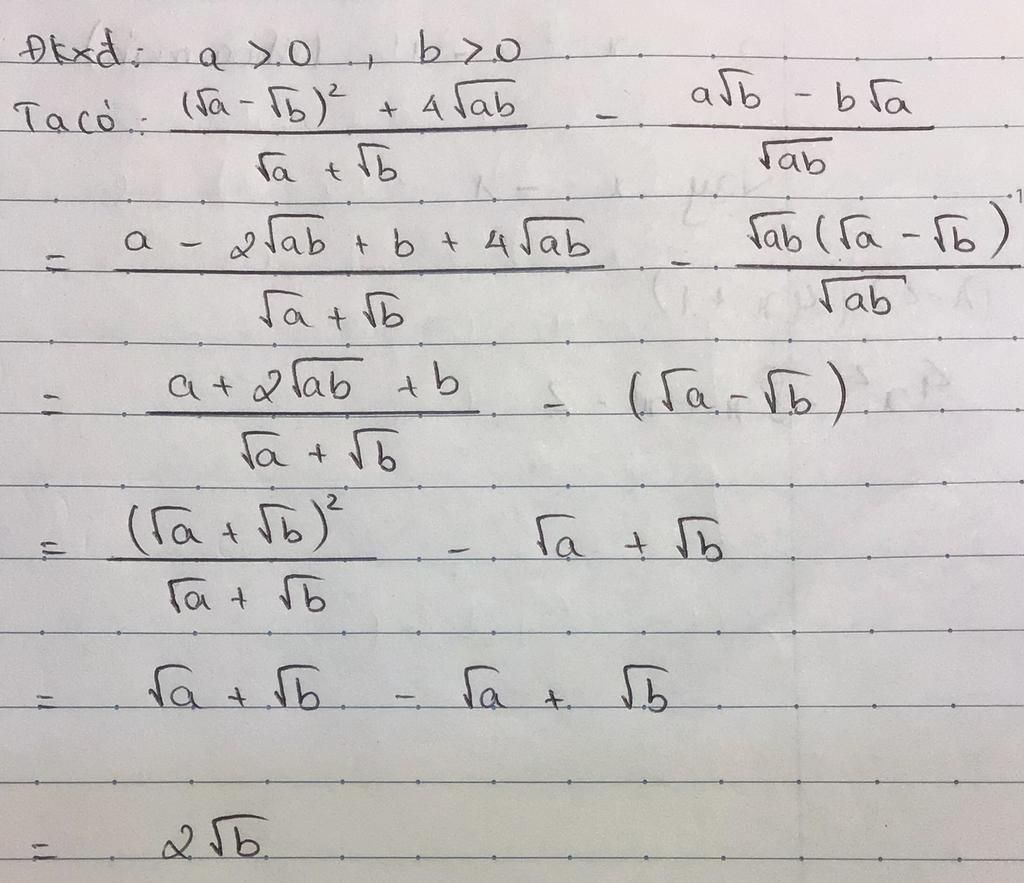 Đkxđ: a > 0, b > 0
Ta có: \frac{(√a - √b)² + 4√ab}{√a + √b} - \frac{a√b - b√a}{√ab}
= \frac{a - 2√ab + b + 4√ab}{√a + √b} - \frac{√ab(√a - √b)}{√ab}
= \frac{a + 2√ab + b}{√a + √b} - (√a - √b)
= \frac{(√a + √b)²}{√a + √b} - √a + √b
= √a + √b - √a + √b
= 2√b